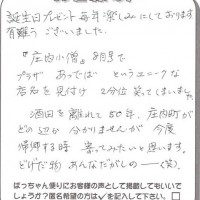 誕生日プレゼント毎年楽しみにしております
有難う ございいました。
『庄内小僧』8月号で
プラザ あっでば というユニークな
店名を見付け 2分位 笑ってしまいました
酒田を離れて50年、庄内町が
どの辺か 分かりませんが 今度
帰郷する時 寄ってみたいと思います。
どげだ物 あんなだがしの――(笑)
ばっちゃん便りにお客様の声として掲載してもいいで
しょうか?匿名希望の方は✓を記入して下さい。